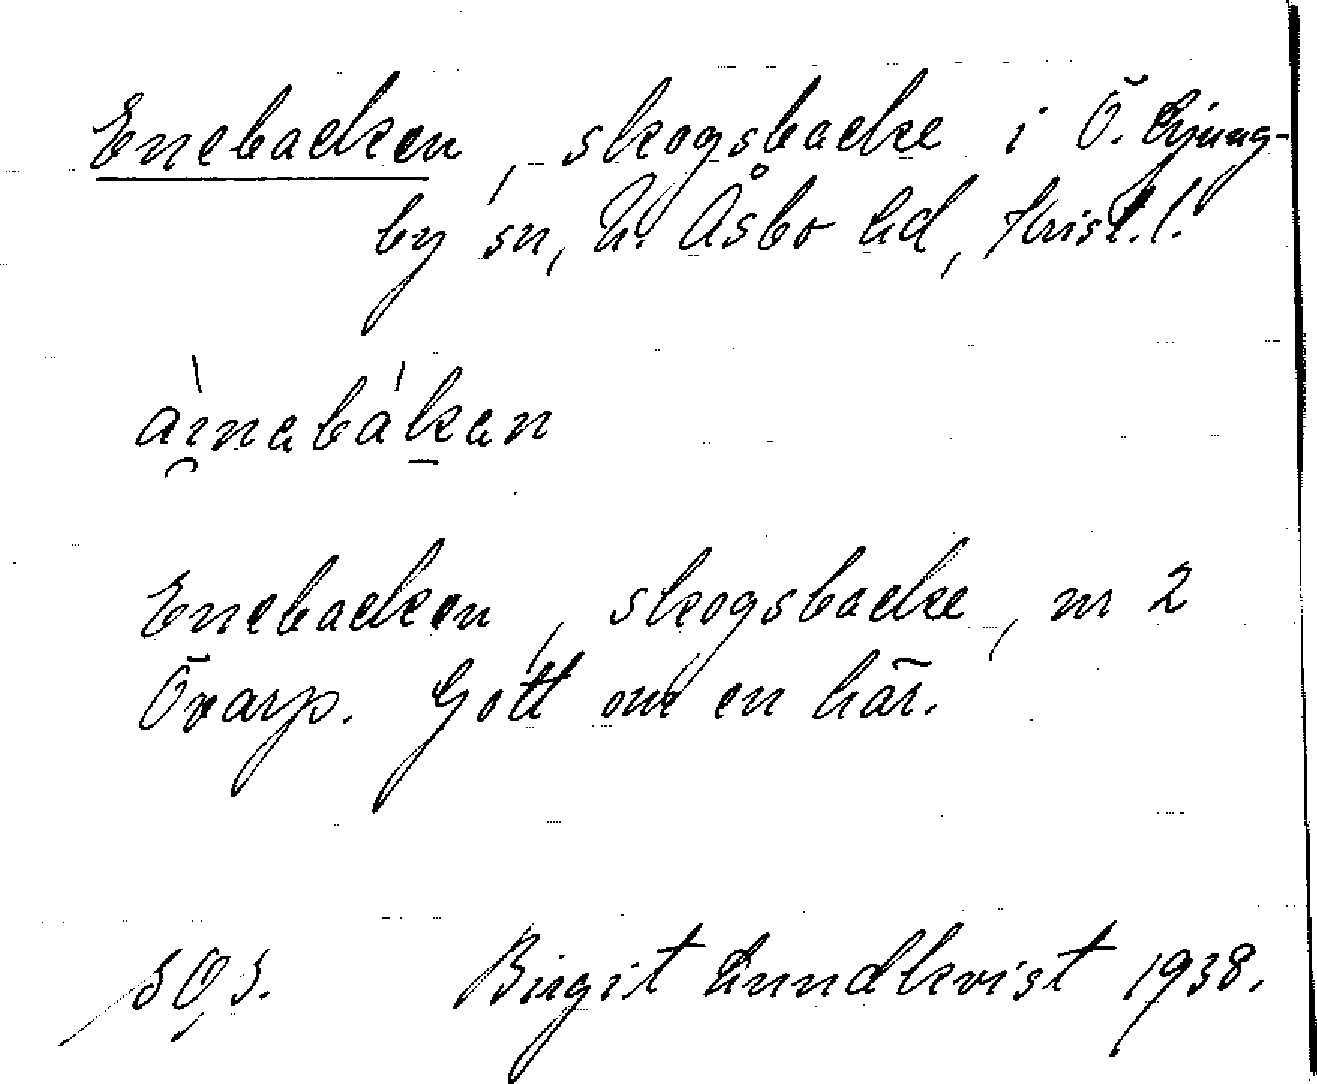 Enebacken, skogsbacke i Ö. Ljung-
by sn, N. Åsbo hd, Krist. l.
áinabákan
Enebacken, skogsbacke, nr 2
Öxarp. Gott om en här.
Birgit Lundkvist 1938.